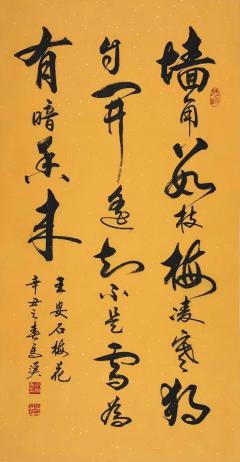 墙角数枝梅凌寒独
自開遥知不是雪為
有暗香来
王安石梅花
辛丑之春